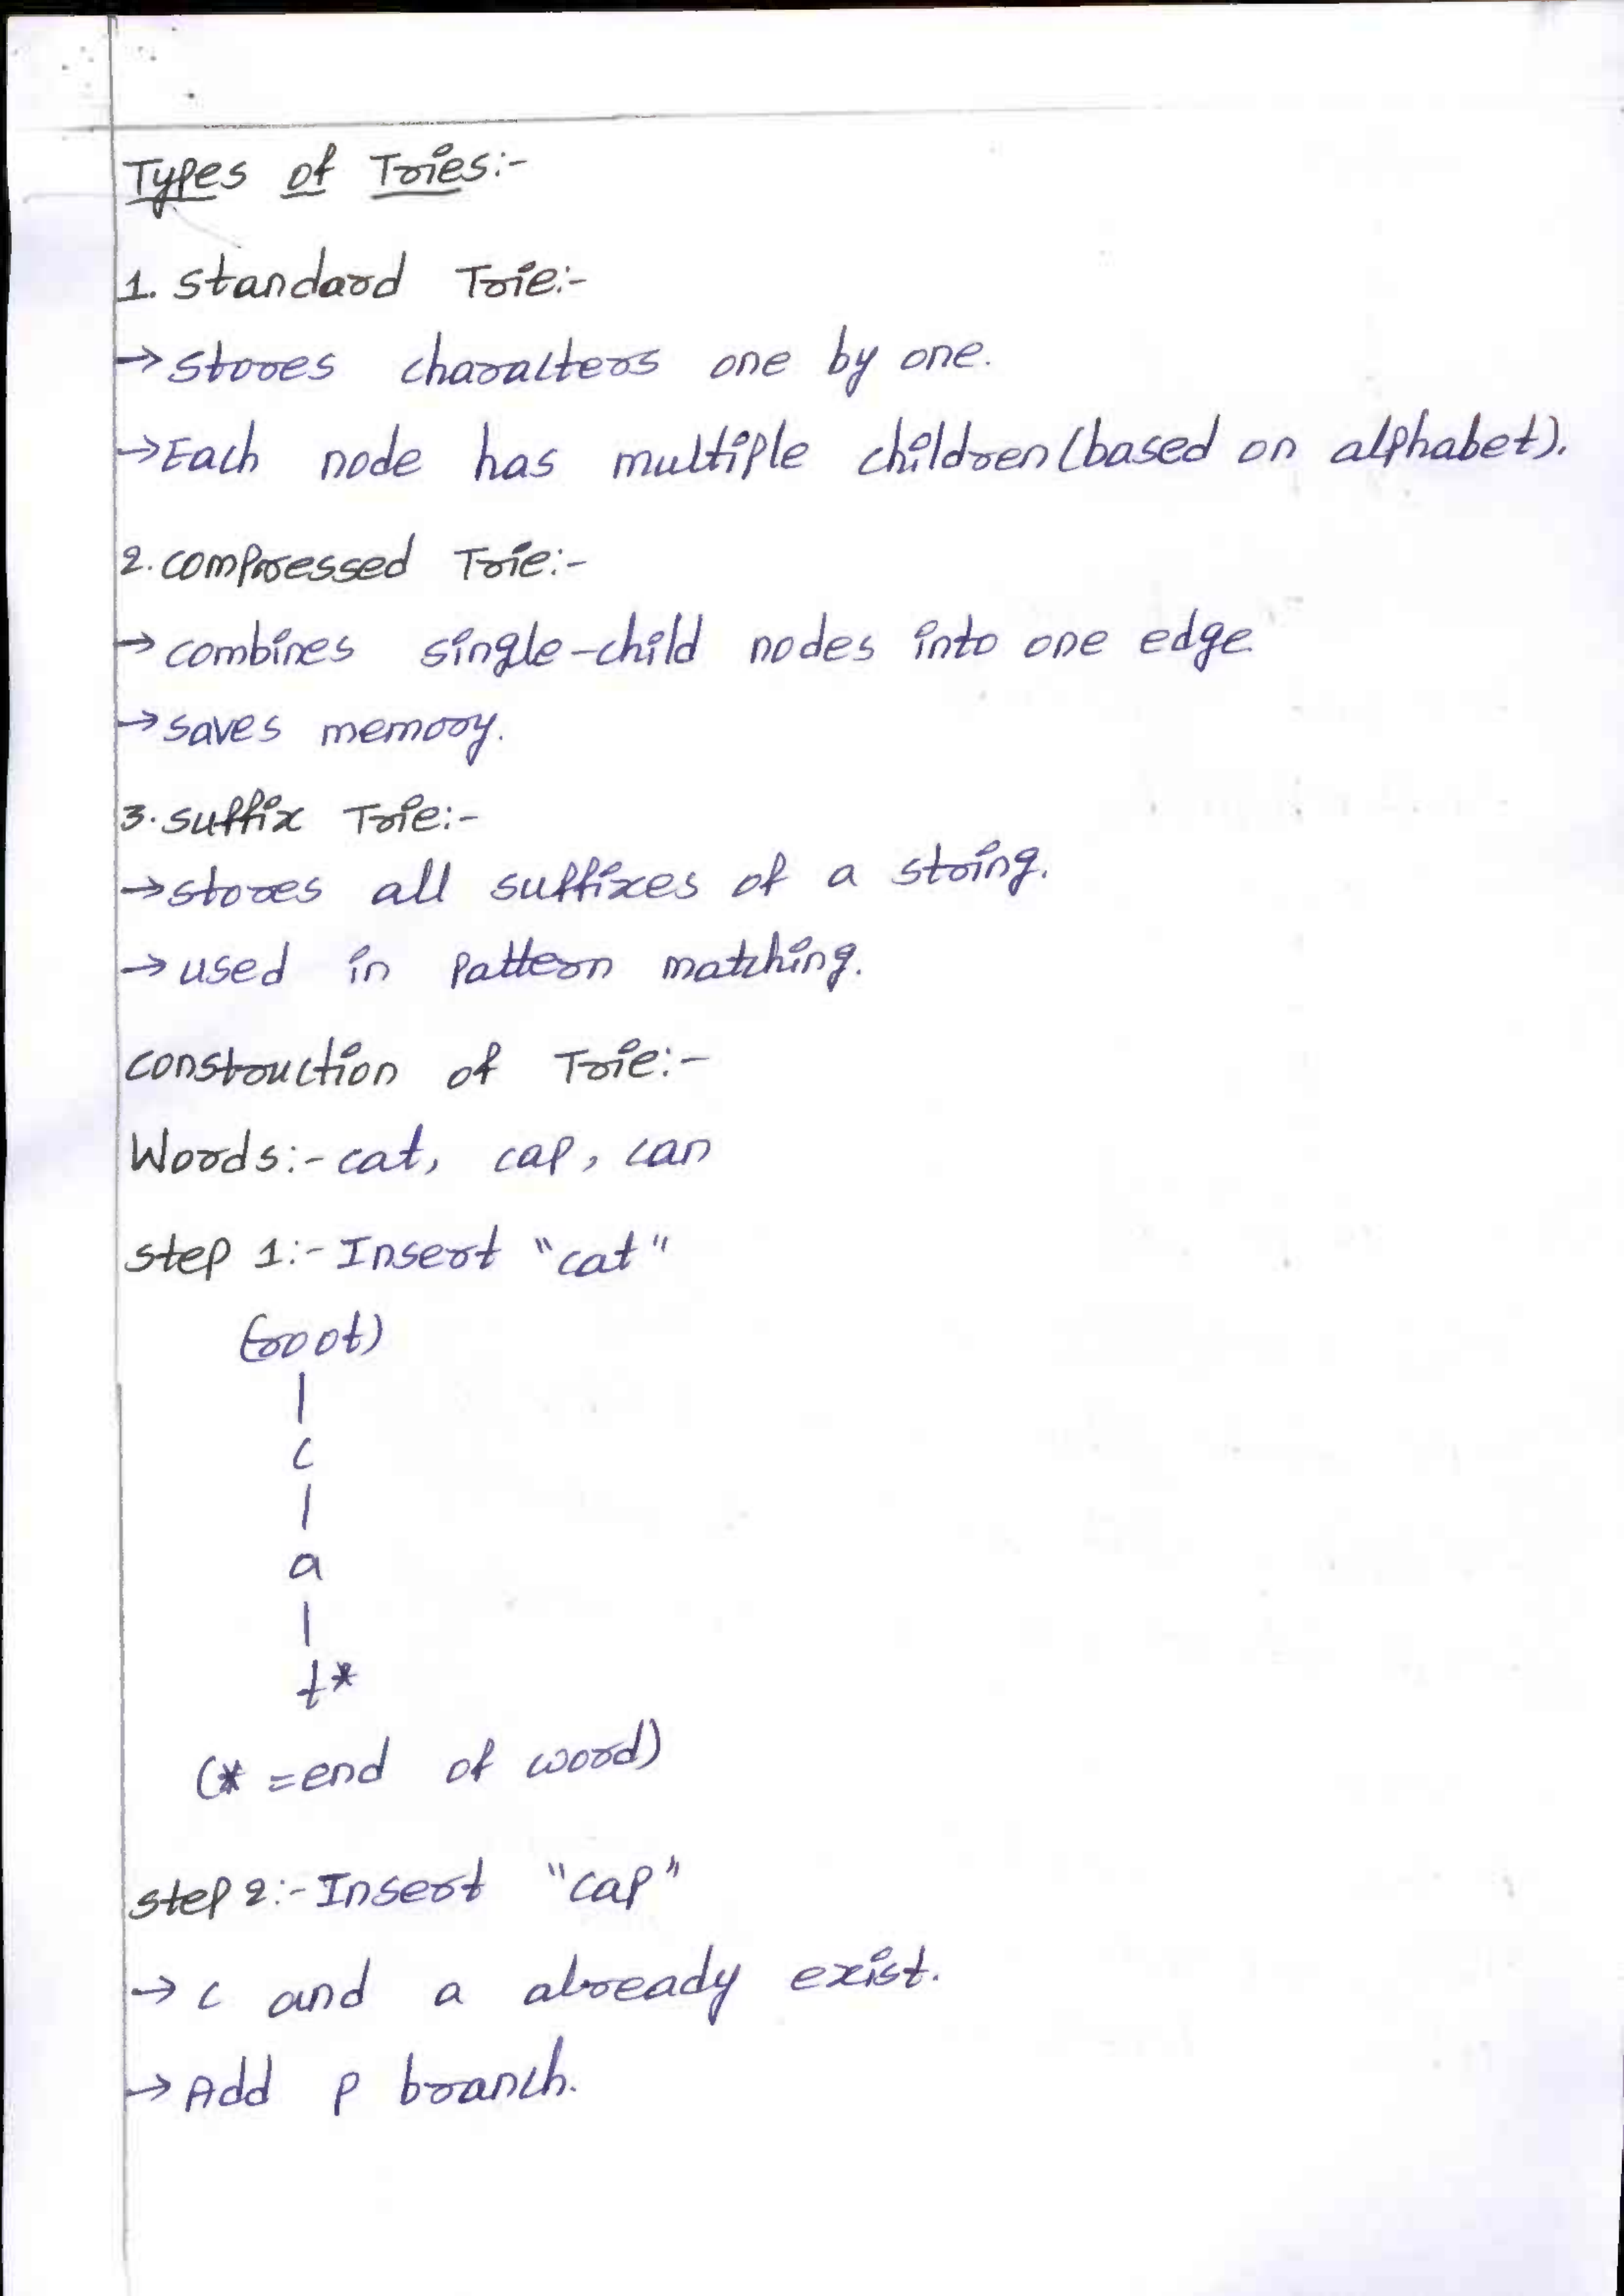 Types of Tries:-
1. Standard Trie:-
→ Stores characters one by one.
→ Each node has multiple children (based on alphabet).
2. compressed Trie:-
→ combines single-child nodes into one edge.
→ saves memory.
3. suffix Trie:-
→ stores all suffixes of a string.
→ used in pattern matching.
construction of Trie:-
Words:- cat, cap, can
step 1:- Insert "cat"
(root)
|
c
|
a
|
t*
(* = end of word)
step 2:- Insert "cap"
→ c and a already exist.
→ Add p branch.